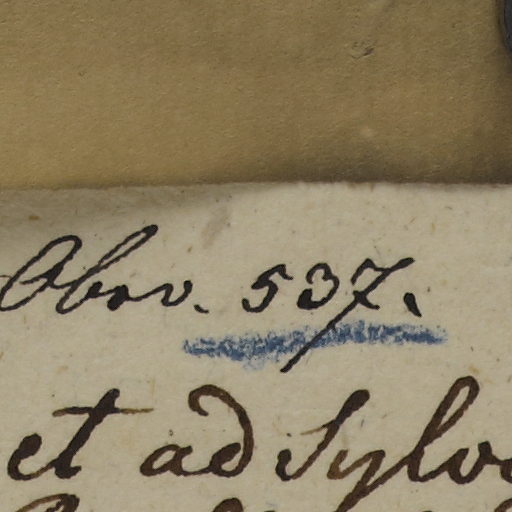 Obsv. 537.
et ad Sylv